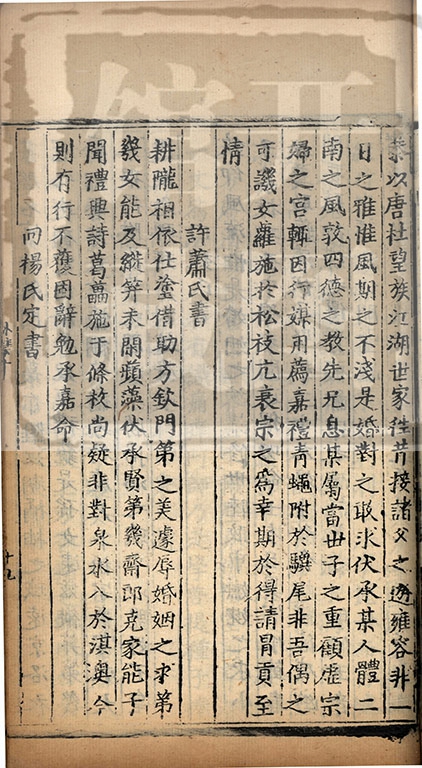 恭以唐杜望族江湖世家徃昔接諸父之遊雍容非一
日之雅惟風期之不淺是婚對之敢求伏承某人體二
南之風敦四德之教先兄息某屬當世子之重顧虛宗
婦之宮輙因行媒用薦嘉禮青蠅附於驥尾非吾偶之
可譏女蘿施於松枝亢衰宗之為幸期於得請冒貢至
情
許蕭氏書
耕隴相依仕塗借助方欽門第之美遽辱婚姻之求第
幾女能及縱笄未閑蘋藻伏承賢第幾齋郎克家能子
聞禮興詩葛藟施于條枚尚疑非對泉水入於淇澳今
則有行不獲固辭勉承嘉命
向楊氏定書
十九